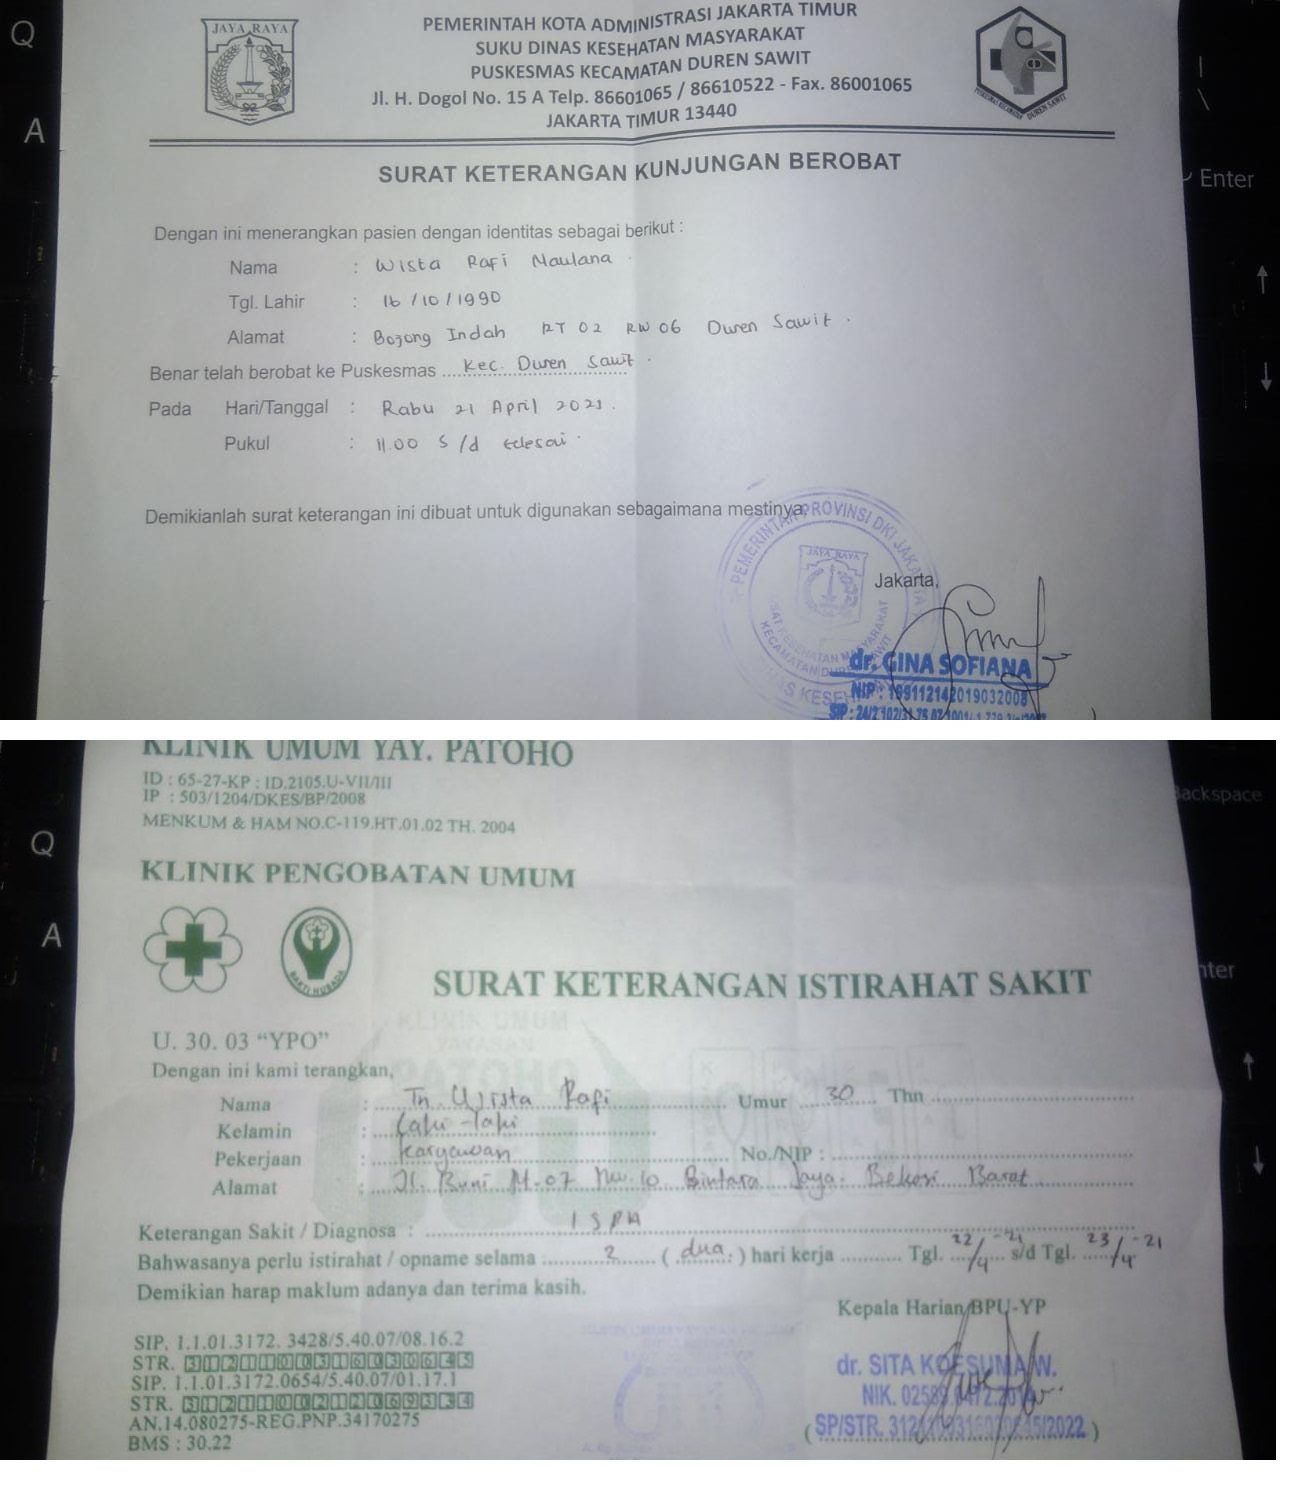 JAYA RAYA
PEMERINTAH KOTA ADMINISTRASI JAKARTA TIMUR
SUKU DINAS KESEHATAN MASYARAKAT
PUSKESMAS KECAMATAN DUREN SAWIT
Jl. H. Dogol No. 15 A Telp. 86601065 / 86610522 - Fax. 86001065
JAKARTA TIMUR 13440
PUSKESMAS KECAMATAN DUREN SAWIT
SURAT KETERANGAN KUNJUNGAN BEROBAT
Dengan ini menerangkan pasien dengan identitas sebagai berikut :
Nama : Wista Rafi Maulana
Tgl. Lahir : 16 / 10 / 1990
Alamat : Bojong Indah RT 02 RW 06 Duren Sawit.
Benar telah berobat ke Puskesmas .... Kec. Duren Sawit.
Pada Hari/Tanggal : Rabu 21 April 2021.
Pukul : 11.00 s/d selesai.
Demikianlah surat keterangan ini dibuat untuk digunakan sebagaimana mestinya,
PEMERINTAH PROVINSI DKI JAKARTA
JAYA RAYA
Jakarta,
dr. GINA SOFIANA
NIP : 199112142019032008
Q
A
Enter
KLINIK UMUM YAY. PATOHO
ID : 65-27-KP : ID.2105.U-VII/III
IP : 503/1204/DKES/BP/2008
MENKUM & HAM NO.C-119.HT.01.02 TH. 2004
KLINIK PENGOBATAN UMUM
BAKTI HUSADA
SURAT KETERANGAN ISTIRAHAT SAKIT
U. 30. 03 “YPO”
Dengan ini kami terangkan,
Nama : Tn. Wista Rafi Umur 30 Thn
Kelamin : Laki-laki
Pekerjaan : Karyawan No./NIP :
Alamat : Jl. Bumi M-07 No. 10 Bintara Jaya. Bekasi Barat
Keterangan Sakit / Diagnosa : ISPA
Bahwasanya perlu istirahat / opname selama 2 ( dua. ) hari kerja Tgl. 22/4-21 s/d Tgl. 23/4-21
Demikian harap maklum adanya dan terima kasih.
Kepala Harian/BPU-YP
SIP. 1.1.01.3172. 3428/5.40.07/08.16.2
STR.
SIP. 1.1.01.3172.0654/5.40.07/01.17.1
STR.
AN.14.080275-REG.PNP.34170275
BMS : 30.22
dr. SITA KOESUMA W.
Q
A
Backspace
nter